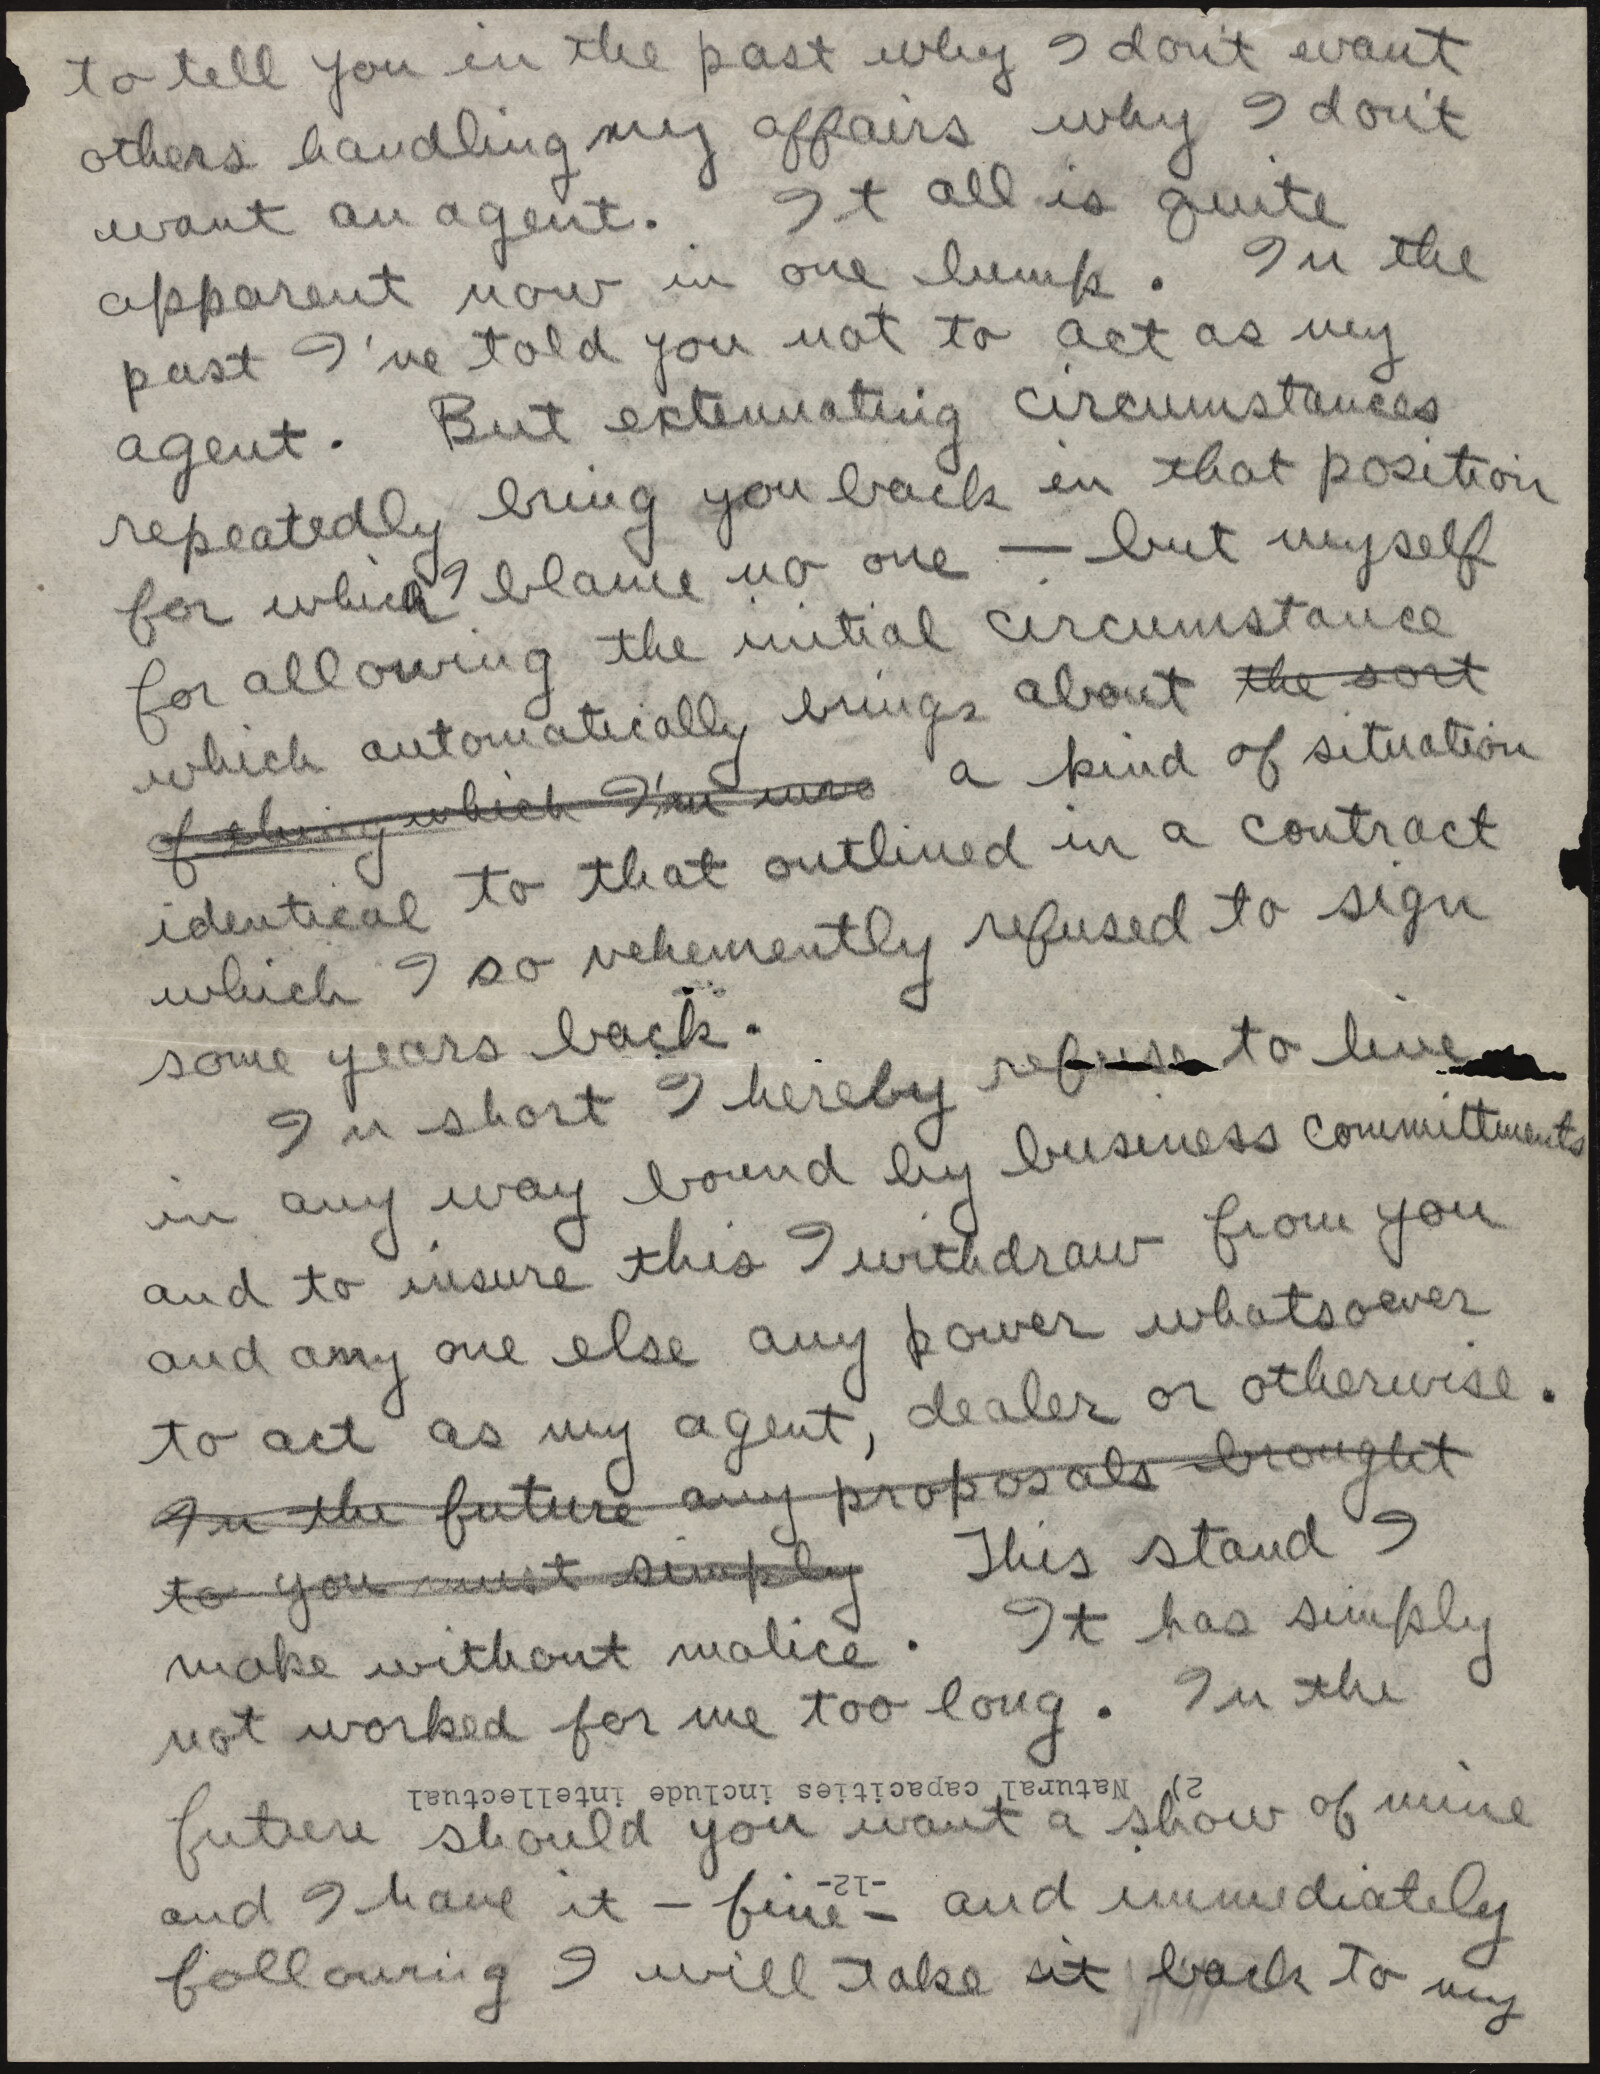 to tell you in the past why I don't want
others handling my affairs why I don't
want an agent. It all is quite
apparent now in one lump. In the
past I've told you not to act as my
agent. But extenuating circumstances
repeatedly bring you back in that position
for which I blame no one — but myself
for allowing the initial circumstance
which automatically brings about the sort
of thing which I'm a kind of situation
identical to that outlined in a contract
which I so vehemently refused to sign
some years back.
In short I hereby refuse to live
in any way bound by business committments
and to insure this I withdraw from you
and any one else any power whatsoever
to act as my agent, dealer or otherwise.
In the future any proposals brought
to you must simply This stand I
make without malice. It has simply
not worked for me too long. In the
2) Natural capacities include intellectual
future should you want a show of mine
-12-
and I have it – fine – and immediately
following I will take it back to my